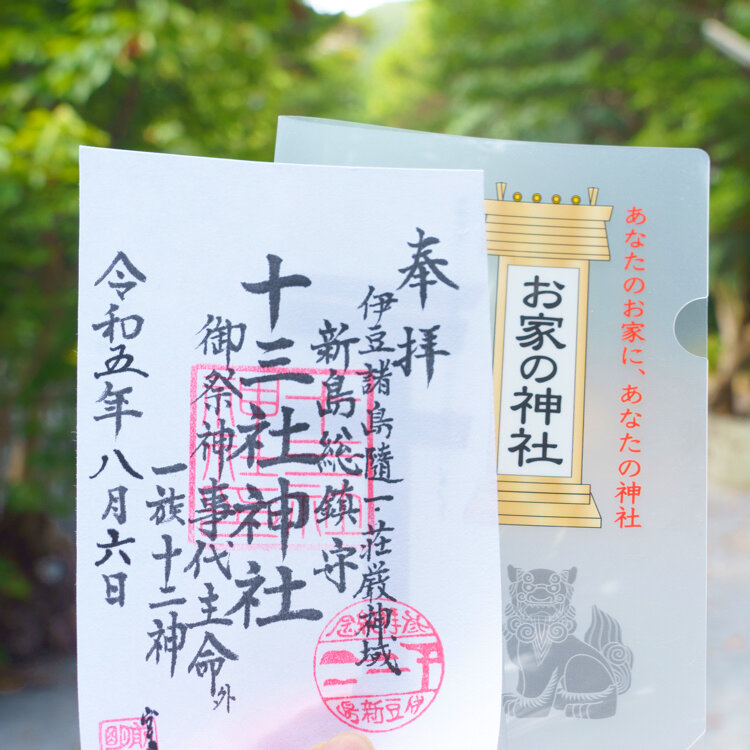 奉拝
伊豆諸島随一荘厳神域
新島総鎮守
十三社神社
御祭神事代主命外
一族十二神
令和五年八月六日
伊豆新島
あなたのお家に、あなたの神社
お家の神社